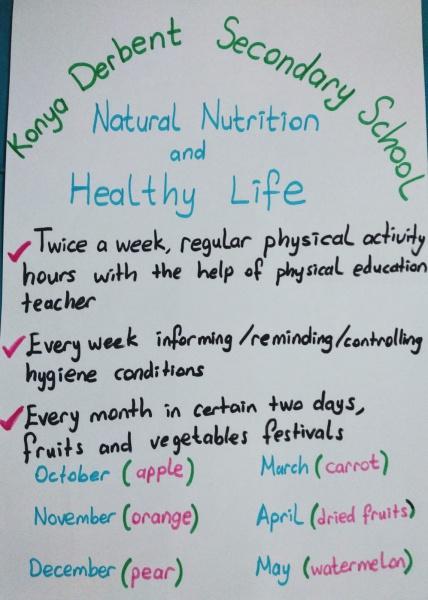 Konya Derbent Secondary School
Natural Nutrition
and
Healthy Life
✓ Twice a week, regular physical activity
hours with the help of physical education
teacher
✓ Every week informing/reminding/controlling
hygiene conditions
✓ Every month in certain two days,
fruits and vegetables festivals
October (apple)
November (orange)
December (pear)
March (carrot)
April (dried fruits)
May (watermelon)